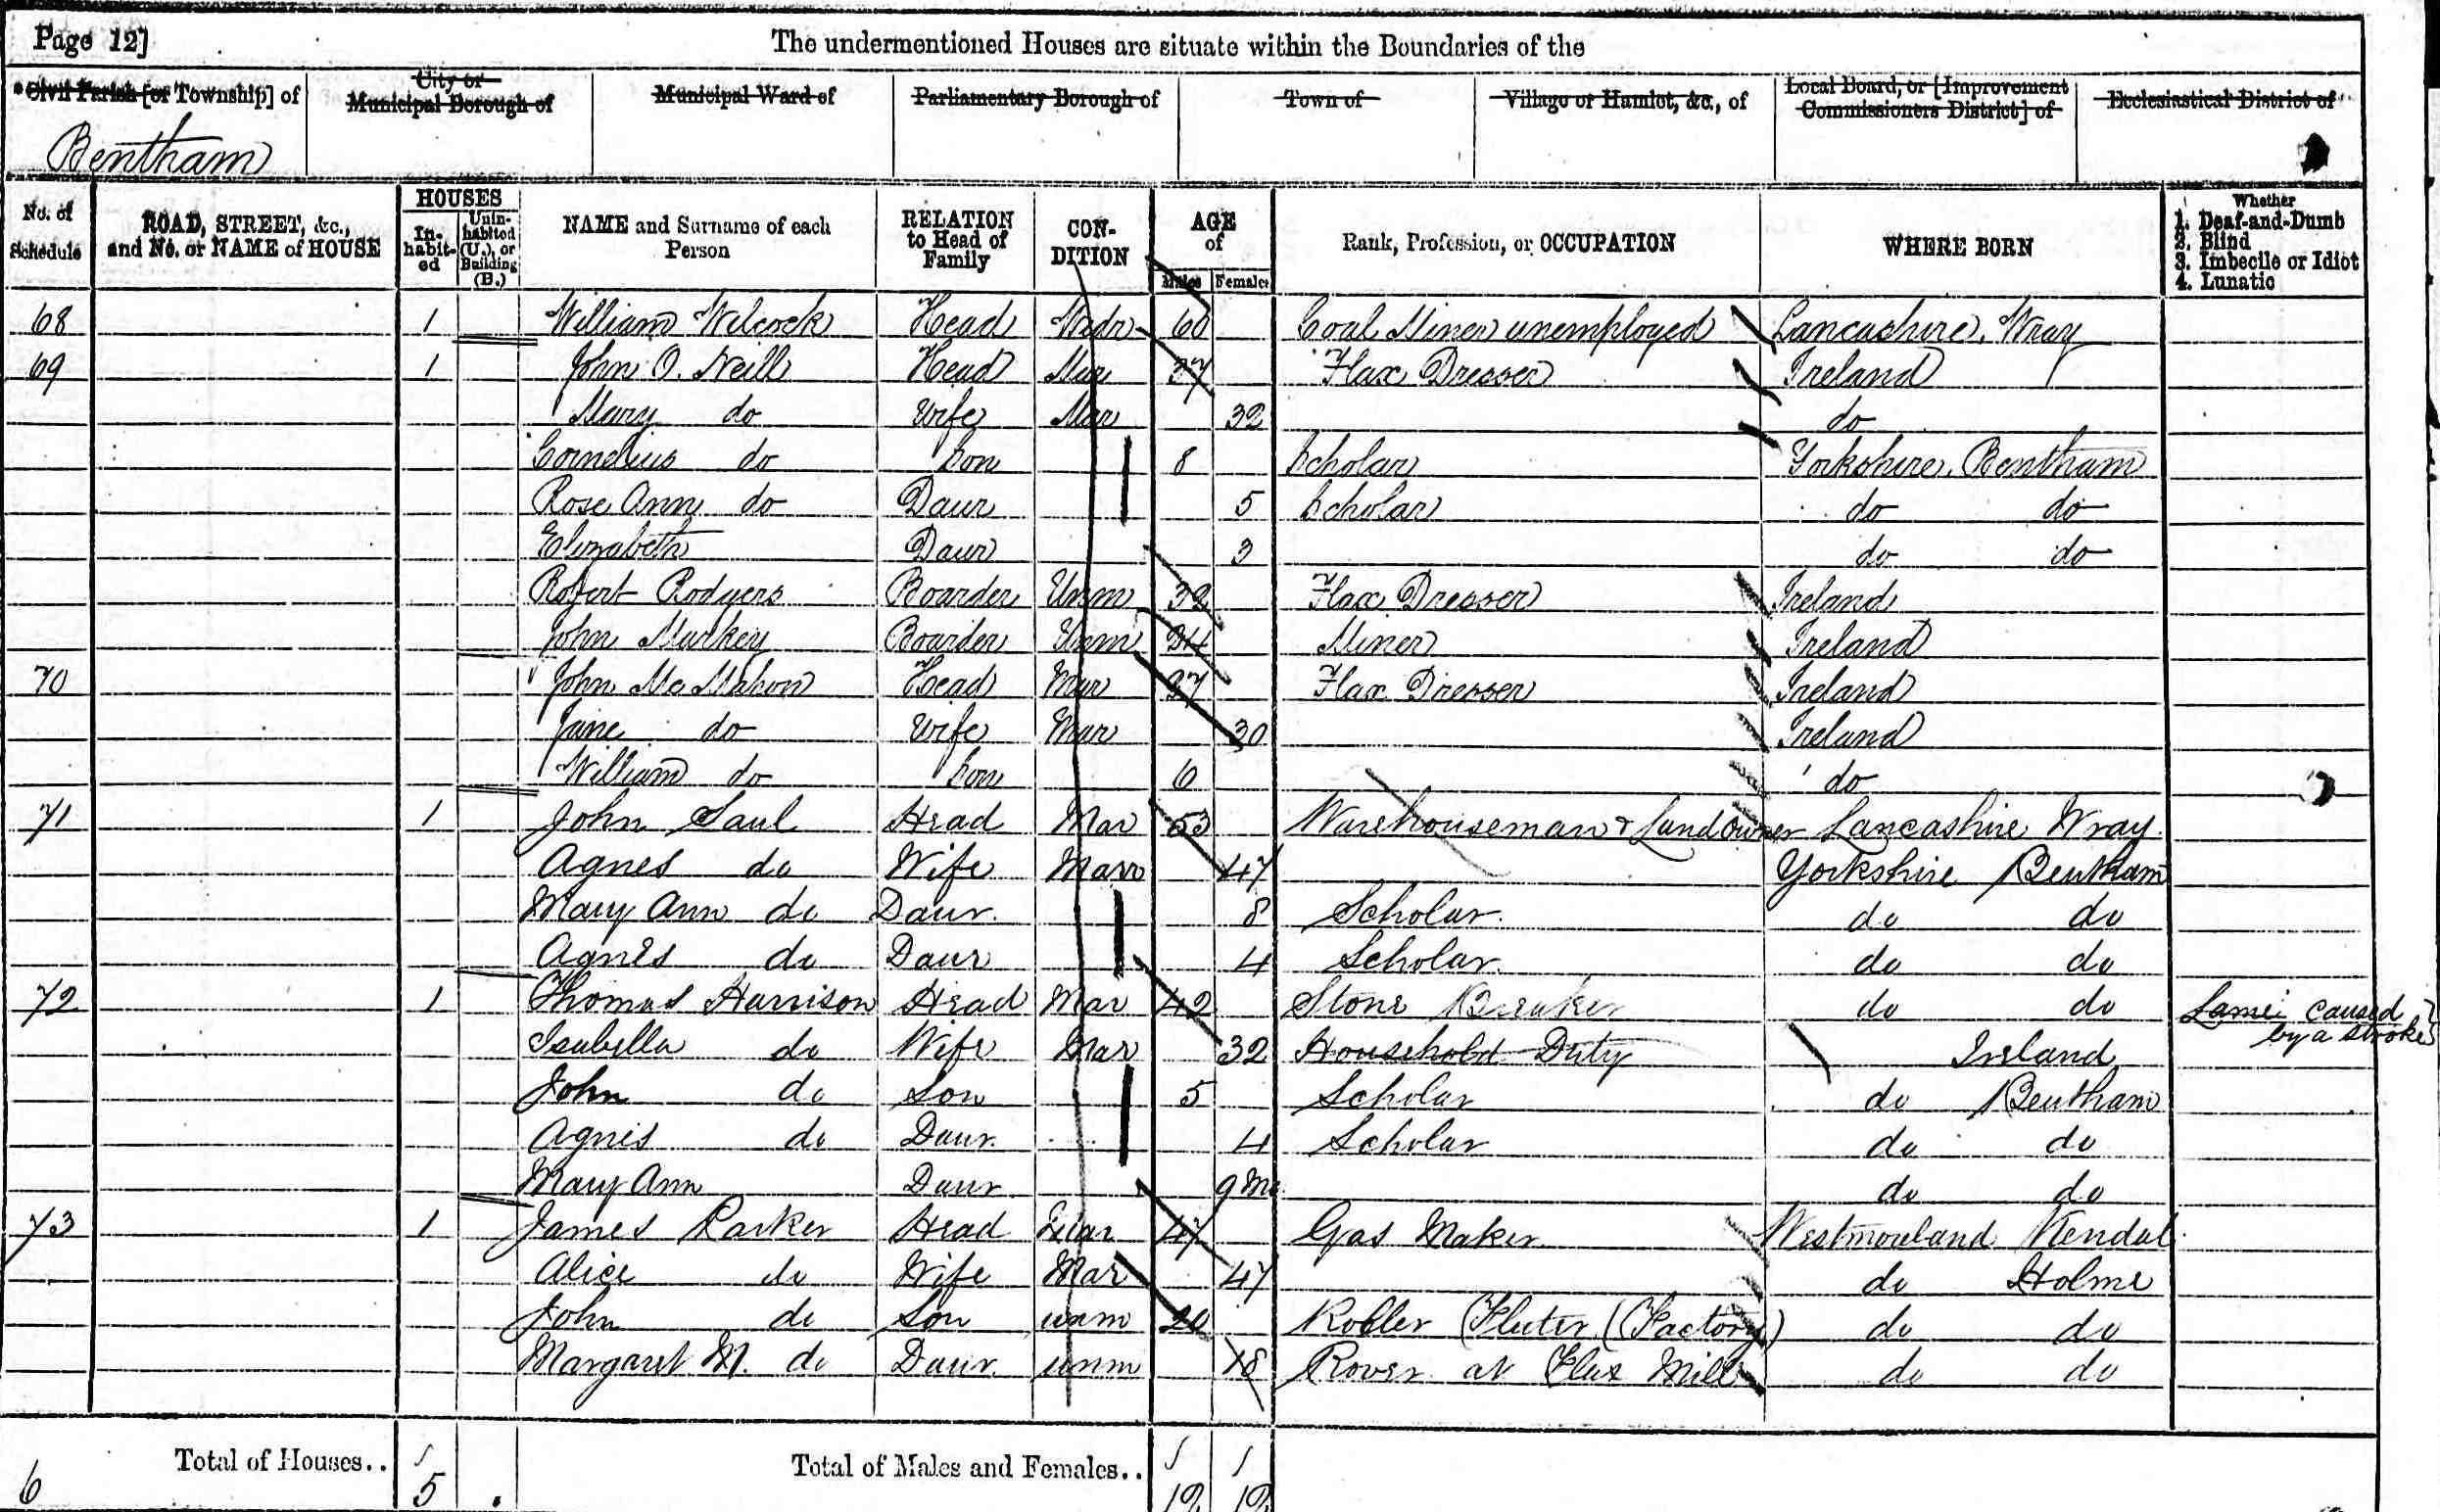 Page 12]
The undermentioned Houses are situate within the Boundaries of the
*Civil Parish [or Township] of
City or Municipal Borough of
Municipal Ward of
Parliamentary Borough of
Town of
Village or Hamlet, &c., of
Local Board, or [Improvement Commissioners District] of
Ecclesiastical District of
Bentham
No. of Schedule
ROAD, STREET, &c., and No. or NAME of HOUSE
HOUSES
In-habit-ed
Unin-habited (U.), or Building (B.)
NAME and Surname of each Person
RELATION to Head of Family
CON-DITION
AGE of
Males Females
Rank, Profession, or OCCUPATION
WHERE BORN
Whether
1. Deaf-and-Dumb
2. Blind
3. Imbecile or Idiot
4. Lunatic
68 1 William Wilcock Head Widr 60 Coal Miner unemployed Lancashire, Wray
69 1 John O. Neill Head Mar 37 Flax Dresser Ireland
Mary do Wife Mar 32 do
Cornelius do Son 8 Scholar Yorkshire, Bentham
Rose Ann do Daur 5 Scholar do do
Elizabeth Daur 3 do do
Robert Rodgers Boarder Unm 32 Flax Dresser Ireland
John Markey Boarder Unm 24 Miner Ireland
70 John Mc Mahon Head Mar 37 Flax Dresser Ireland
Jane do Wife Mar 30 Ireland
William do Son 6 do
71 1 John Saul Head Mar 53 Warehouseman & Landowner Lancashire Wray
Agnes do Wife Marr 47 Yorkshire Bentham
Mary Ann do Daur. 8 Scholar do do
Agnes do Daur 4 Scholar do do
72 1 Thomas Harrison Head Mar 42 Stone Breaker do do Lame caused by a stroke
Isabella do Wife Mar 32 Household Duty Ireland
John do Son 5 Scholar do Bentham
Agnes do Daur. 4 Scholar do do
Mary Ann Daur 9 Mo do do
73 1 James Parker Head Mar 47 Gas Maker Westmorland Kendal
Alice do Wife Mar 47 do Holme
John do Son unm 20 Roller Fluter (Factory) do do
Margaret M. do Daur. unm 18 Rover at Flax Mill do do
6 Total of Houses.. 5 Total of Males and Females.. 12 12